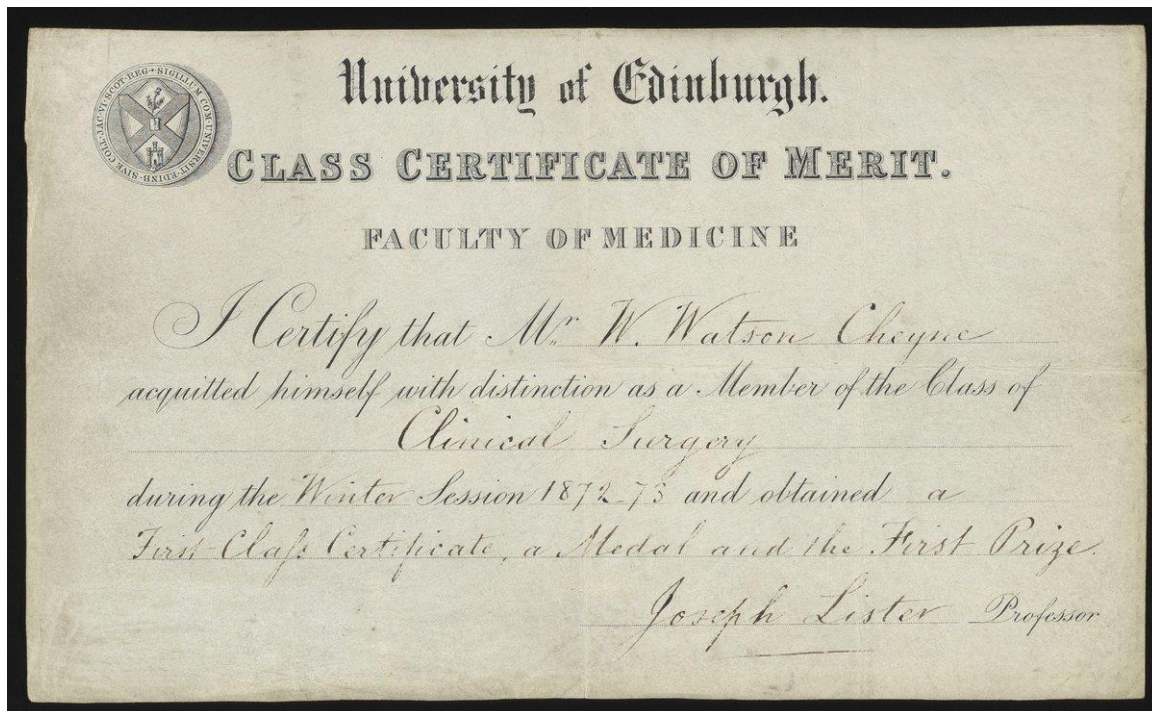 University of Edinburgh.
SIGILLUM COM·UNIVERSIT·EDINB·SIVE COLL·JAC·VI·SCOT·REG
CLASS CERTIFICATE OF MERIT.
FACULTY OF MEDICINE
I Certify that Mr. W. Watson Cheyne
acquitted himself with distinction as a Member of the Class of
Clinical Surgery
during the Winter Session 1872-73 and obtained a
First Claſs Certificate, a Medal and the First Prize.
Joseph Lister Professor